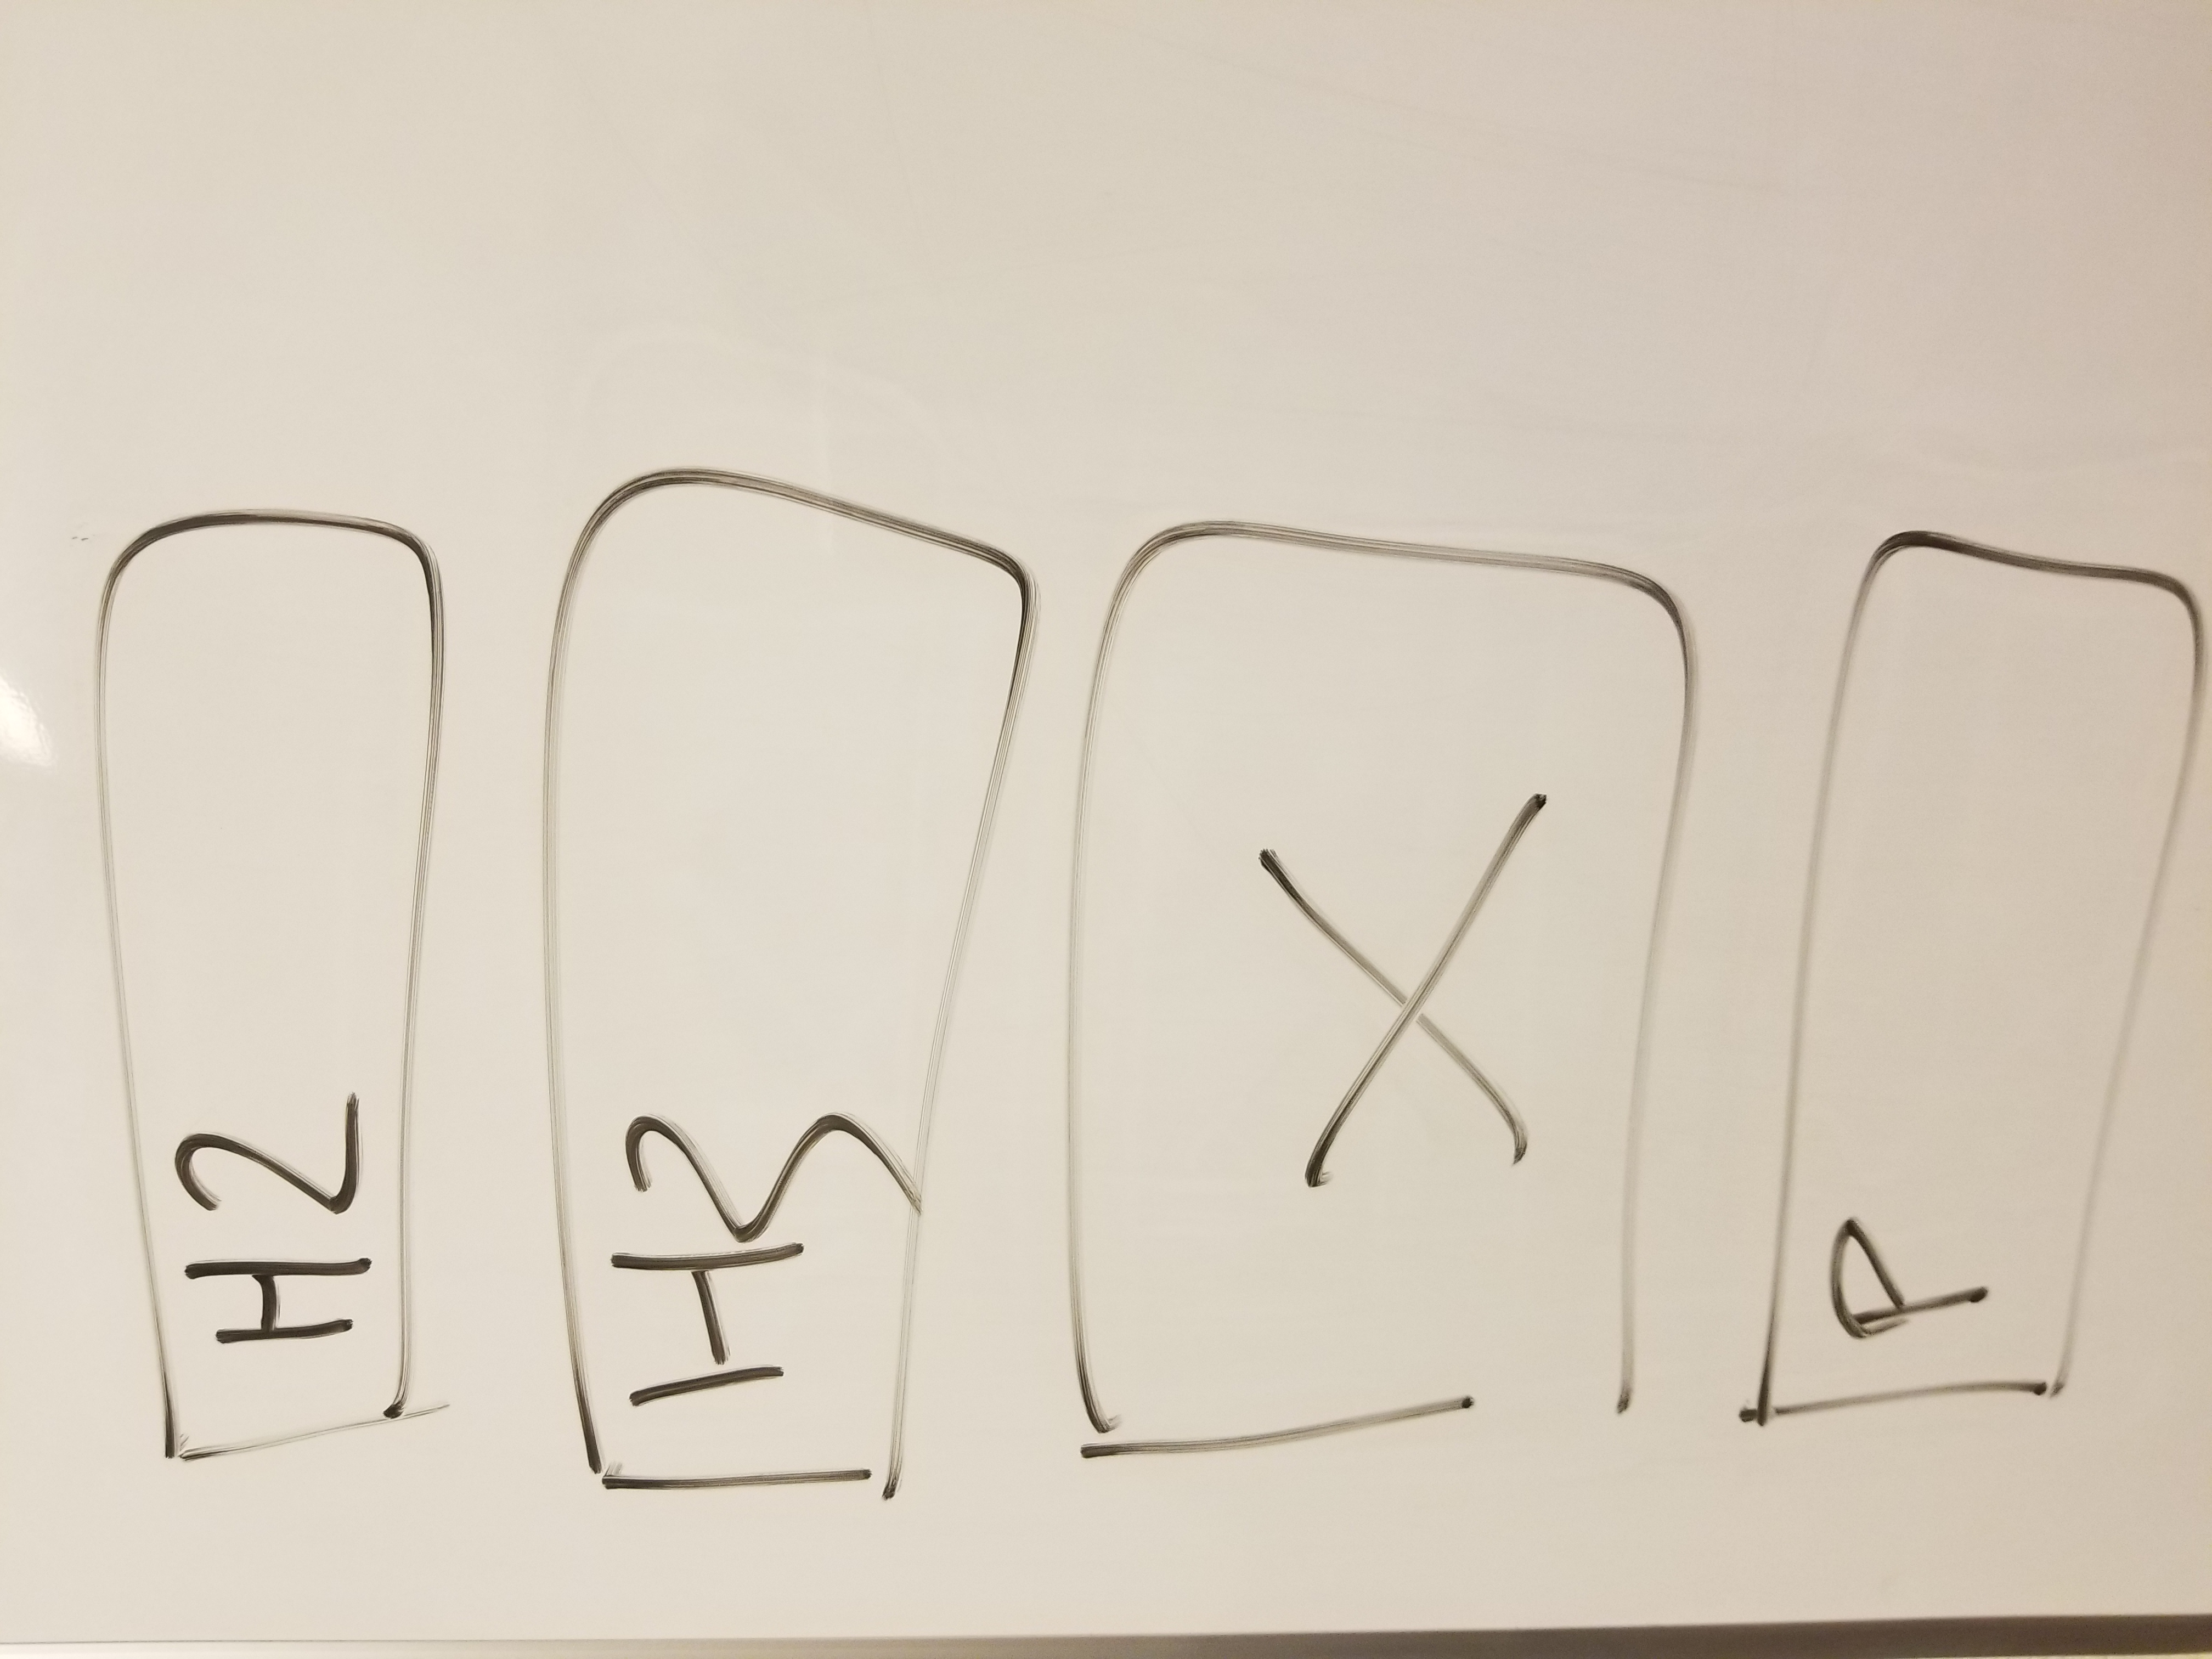 H2
H3
X
P